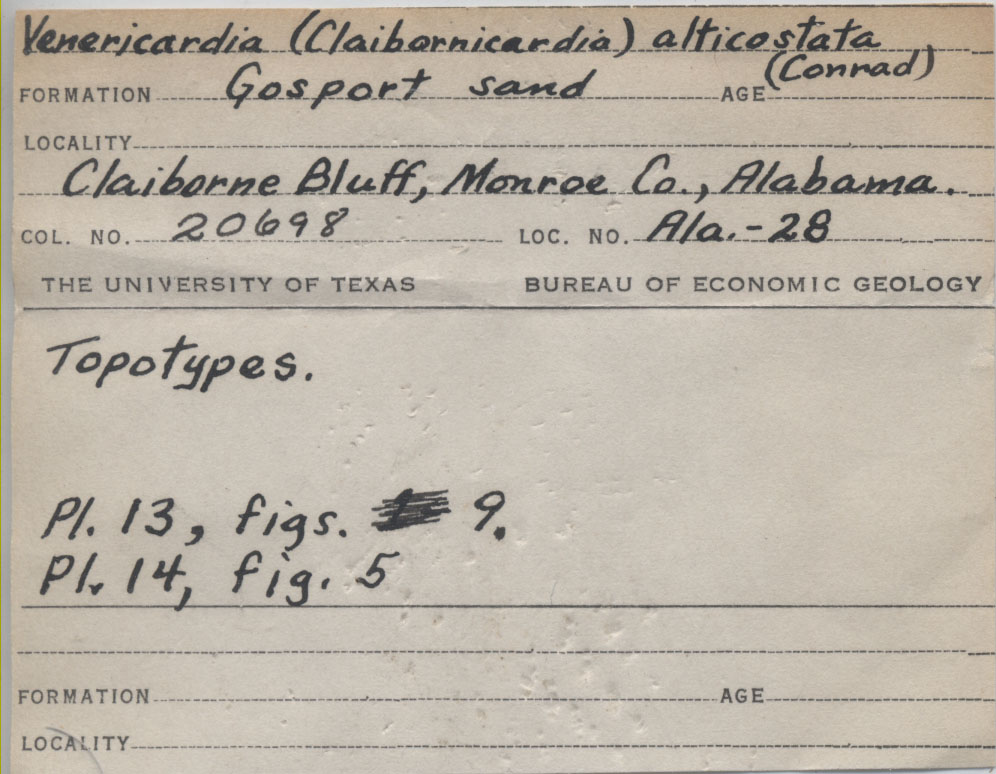 Venericardia (Claibornicardia) alticostata
(Conrad)
FORMATION Gosport sand AGE
LOCALITY
Claiborne Bluff, Monroe Co., Alabama.
COL. NO. 20698 LOC. NO. Ala.-28
THE UNIVERSITY OF TEXAS BUREAU OF ECONOMIC GEOLOGY
Topotypes.
Pl. 13, figs. 9.
Pl. 14, fig. 5
FORMATION AGE
LOCALITY